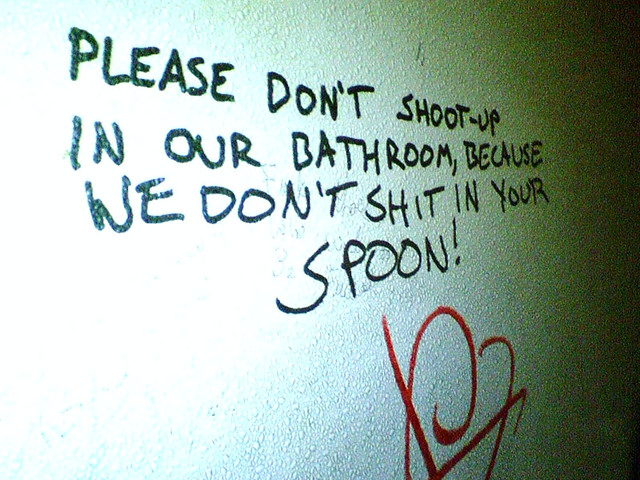 PLEASE DON'T SHOOT-UP
IN OUR BATHROOM, BECAUSE
WE DON'T SHIT IN YOUR
SPOON!